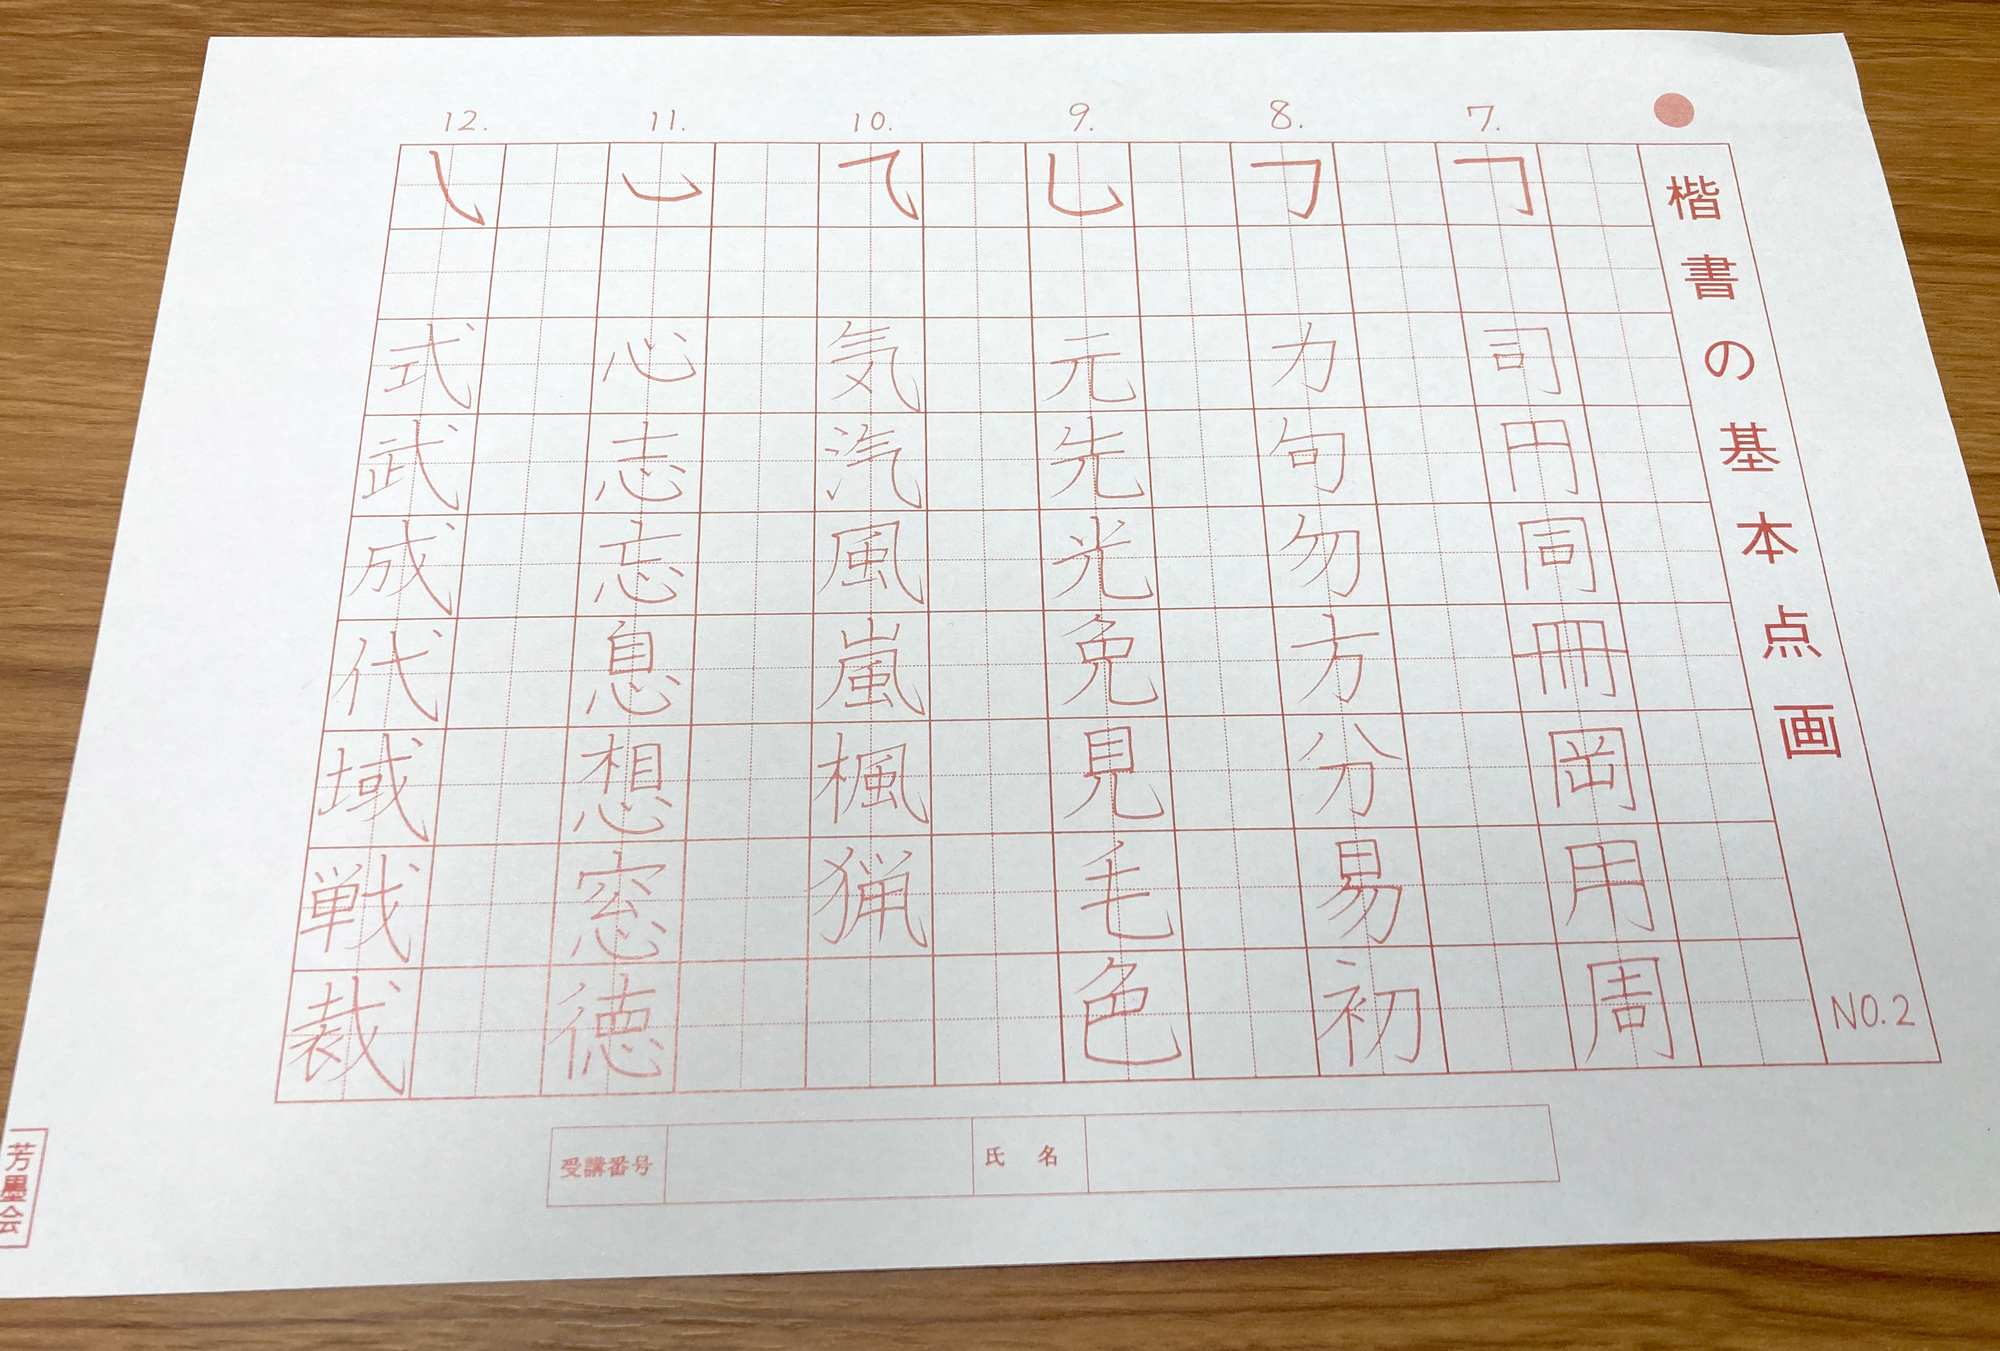 楷書の基本点画
NO.2
7.
司円同冊岡用周
8.
力句勿方分易初
9.
元先光免見毛色
10.
気汽風嵐楓猟
11.
心志忘息想窓徳
12.
式武成代域戦裁
受講番号
氏名
芳墨会